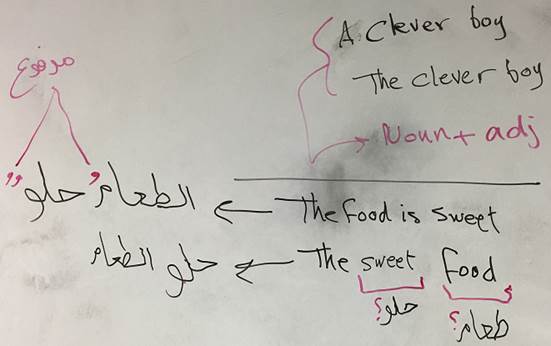 A Clever boy
The clever boy
Noun + adj
مرفوع
الطعامُ حلوٌ ← The food is sweet
حلو الطعام ← The sweet food
حلو؟ طعام؟